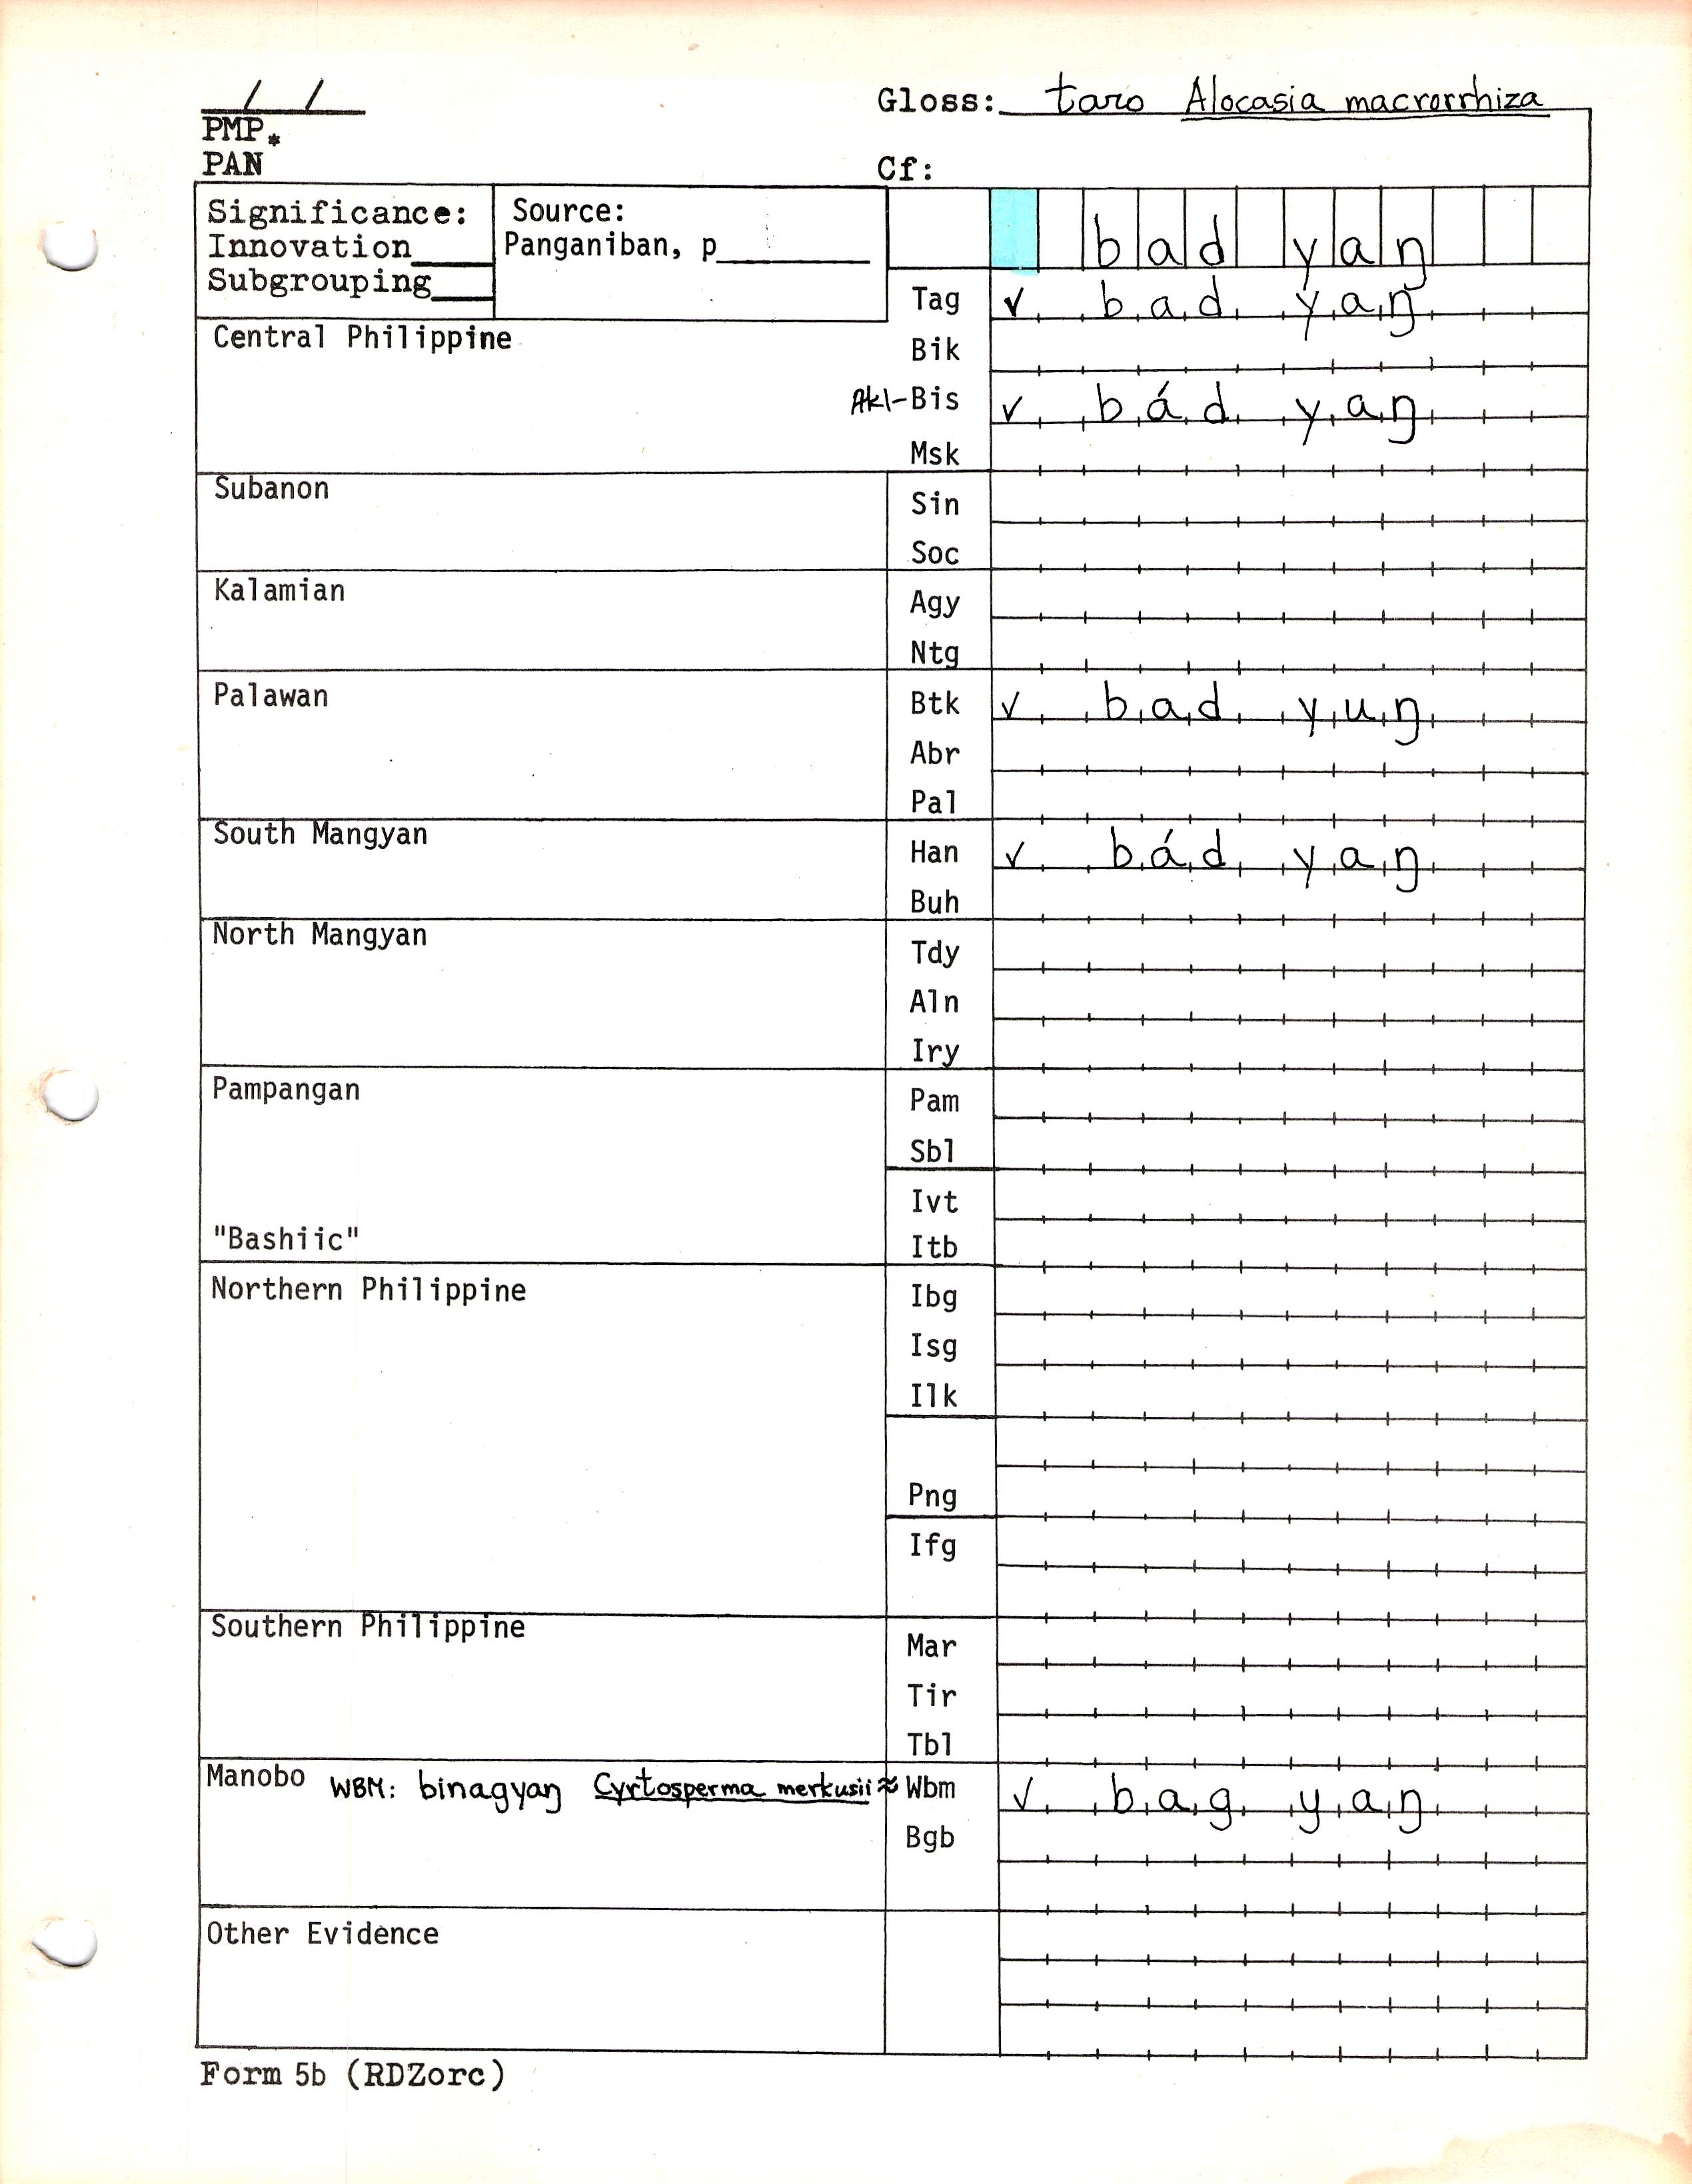 / /
PMP*
PAN
Gloss: taro Alocasia macrorrhiza
Cf:
Significance:
Innovation____
Subgrouping____
Source:
Panganiban, p________
bad yaŋ
Tag ✓ bad yaŋ
Central Philippine
Bik
Akl-Bis ✓ bád yaŋ
Msk
Subanon
Sin
Soc
Kalamian
Agy
Ntg
Palawan
Btk ✓ bad yuŋ
Abr
Pal
South Mangyan
Han ✓ bád yaŋ
Buh
North Mangyan
Tdy
Aln
Iry
Pampangan
Pam
Sbl
Ivt
"Bashiic"
Itb
Northern Philippine
Ibg
Isg
Ilk
Png
Ifg
Southern Philippine
Mar
Tir
Tbl
Manobo WBM: binagyaŋ Cyrtosperma merkusii ≈ Wbm ✓ bag yaŋ
Bgb
Other Evidence
Form 5b (RDZorc)